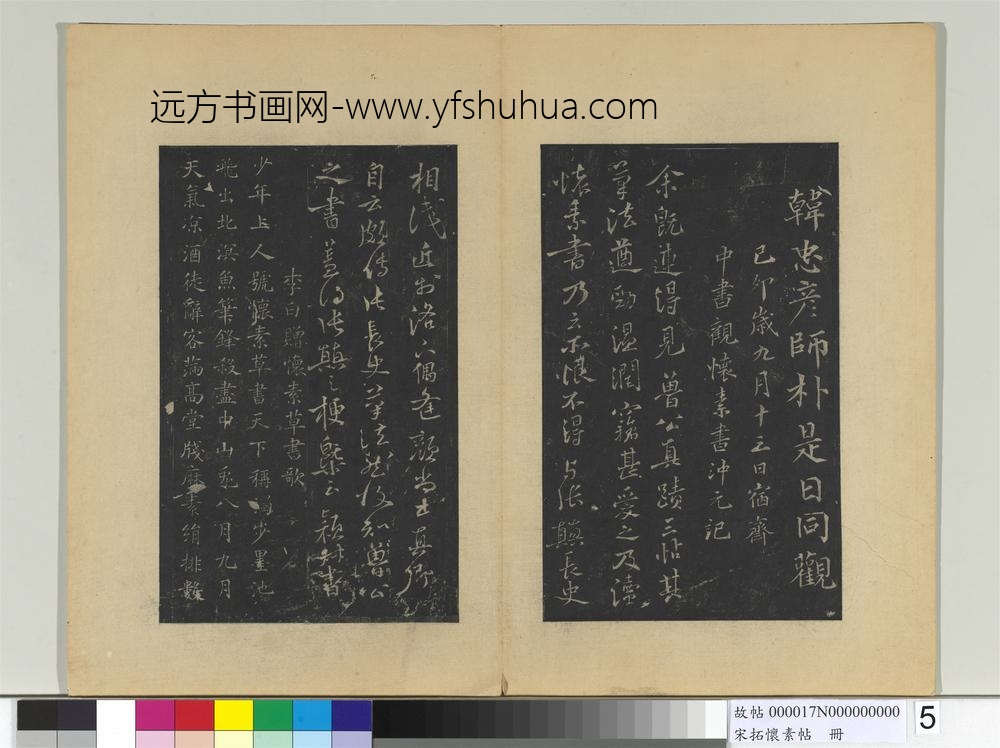 远方书画网-www.yfshuhua.com
韓忠彥師朴是日同觀
己卯歲九月十三日宿齋
中書觀懷素書沖元記
余既連得見魯公真蹟三帖其
筆法遒勁溫潤竊甚愛之及讀
懷素書乃云不恨不得與張顛長史
相識近於洛下偶逢顏尚書真卿
自云頗傳張長史筆法然後知魯公
之書蓋得張顛之梗槩云穎叔書
李白贈懷素草書歌
少年上人號懷素草書天下稱獨步墨池
飛出北溟魚筆鋒殺盡中山兎八月九月
天氣凉酒徒辭客滿高堂牋麻素絹排數
故帖 000017N000000000
宋拓懷素帖 冊
5